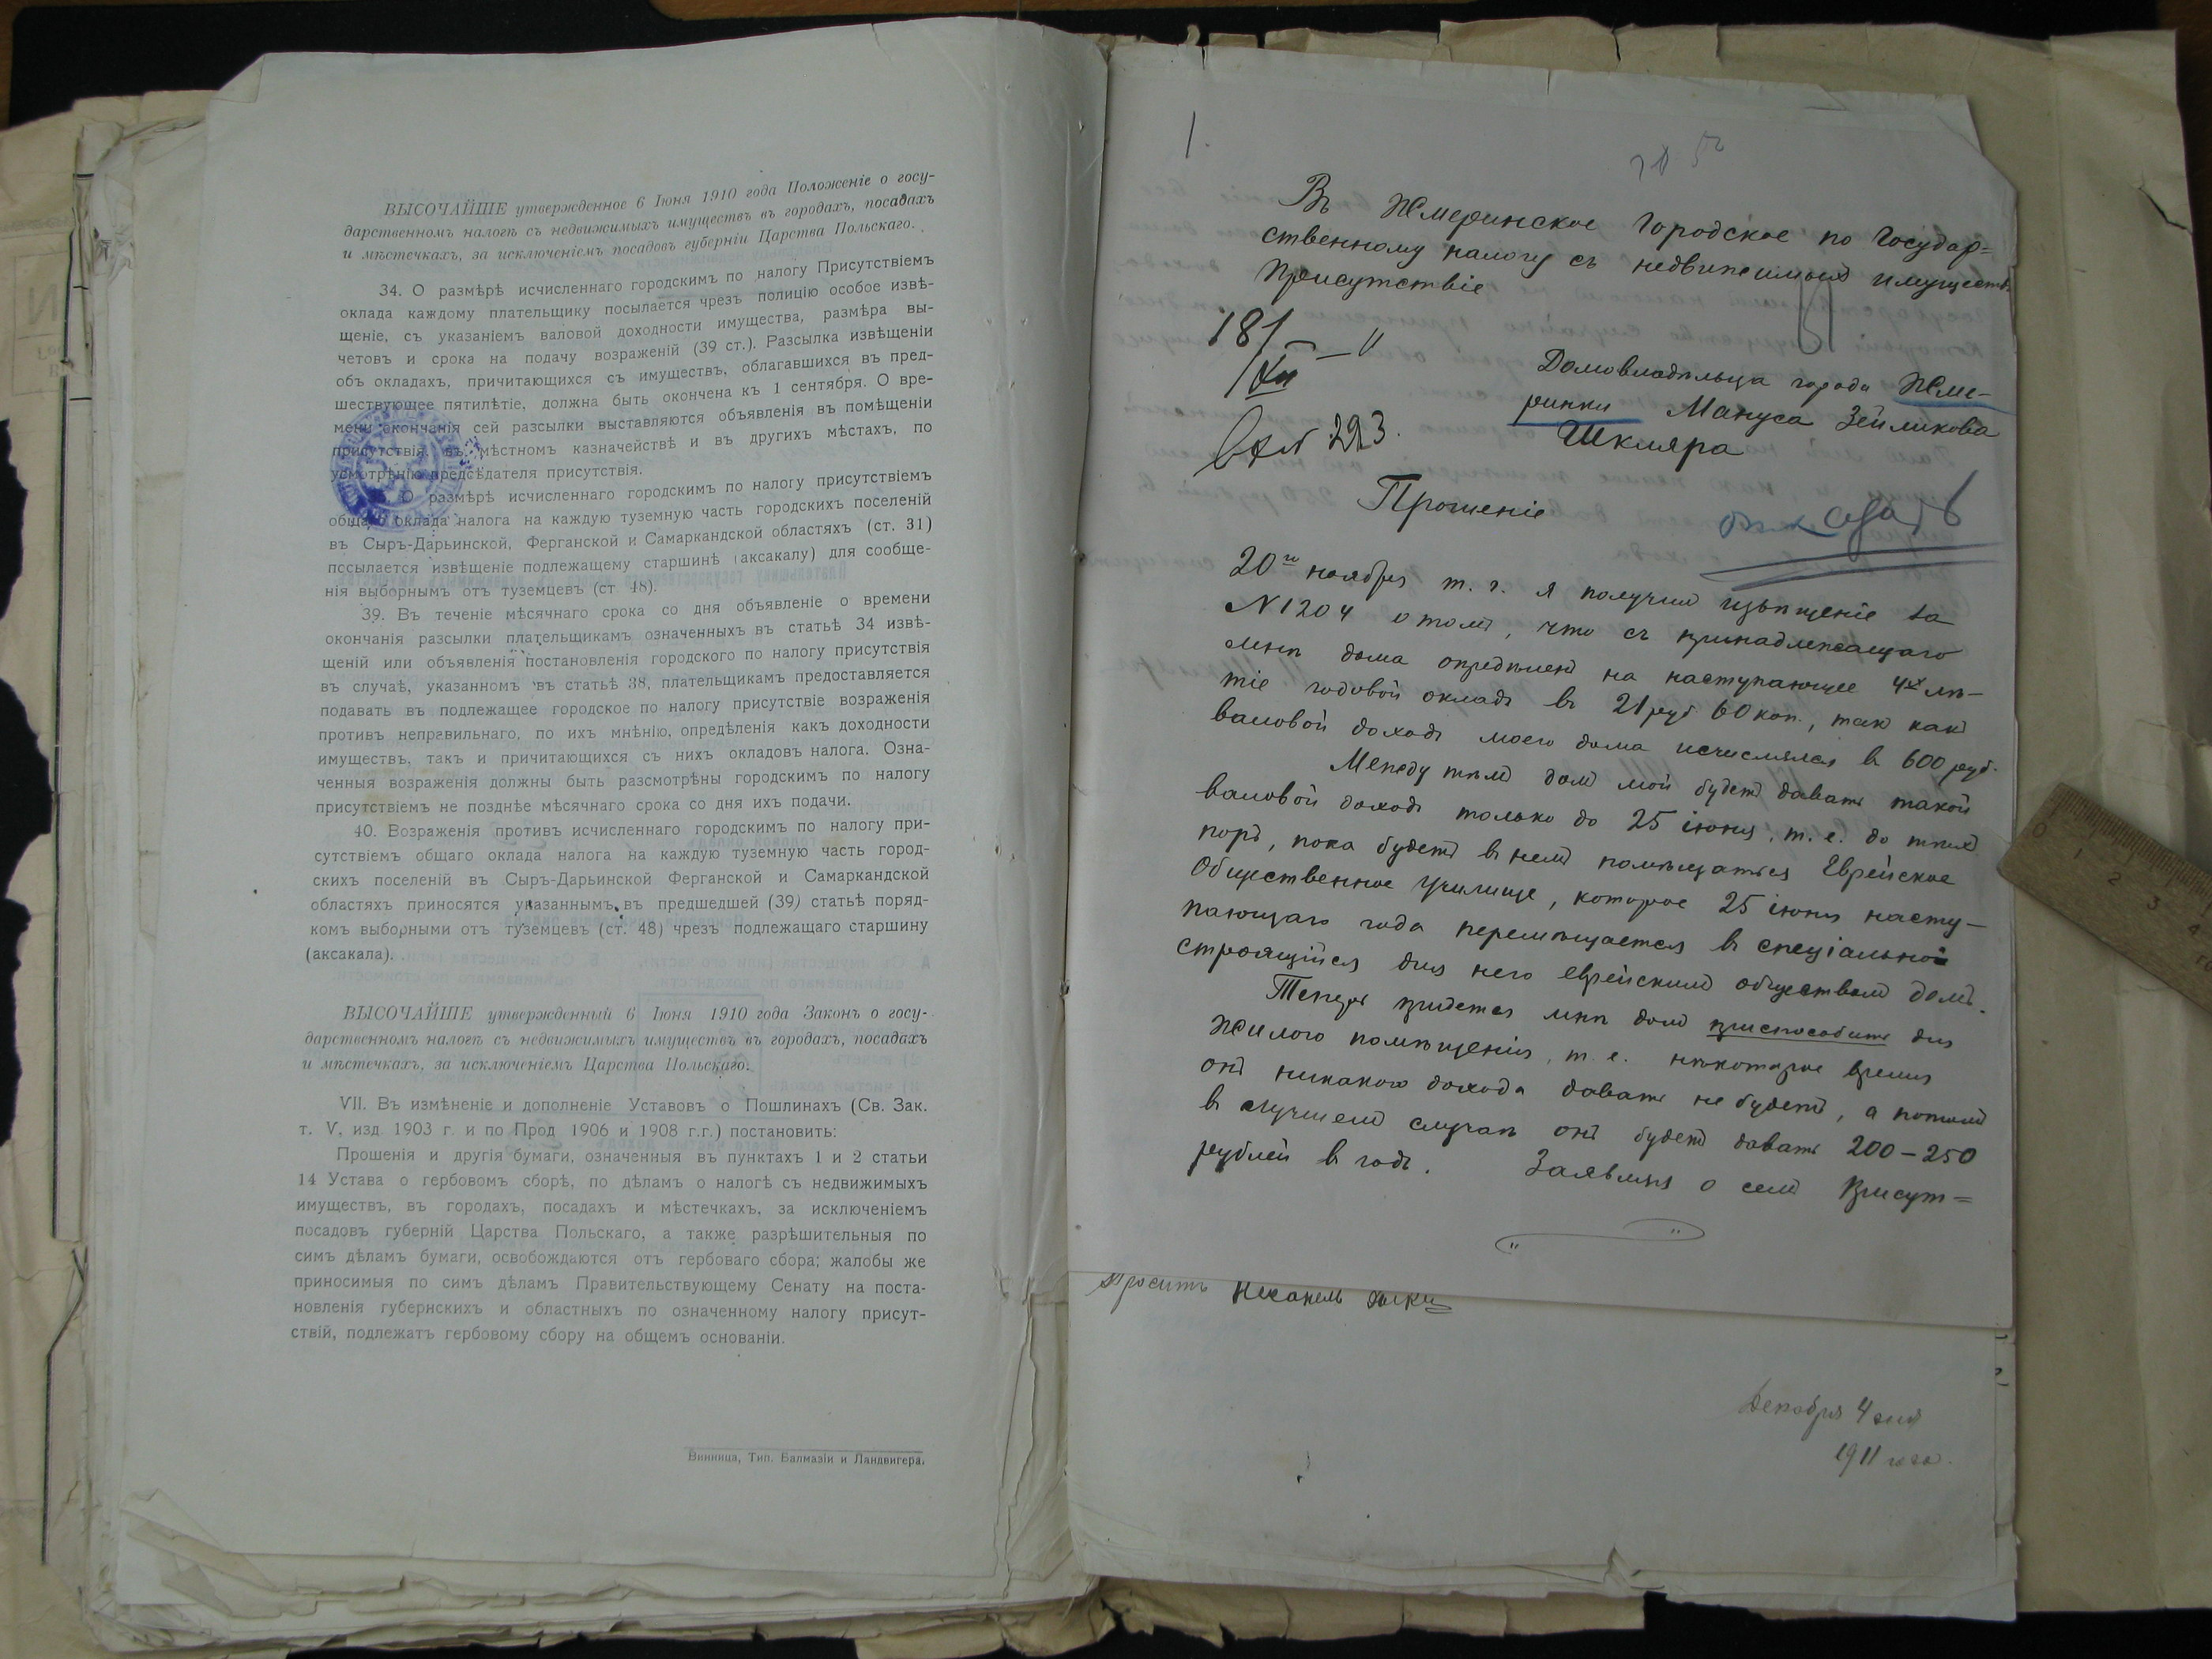 ВЫСОЧАЙШЕ утвержденное 6 Іюня 1910 года Положеніе о госу-
дарственномъ налогѣ съ недвижимыхъ имуществъ въ городахъ, посадахъ
и мѣстечкахъ, за исключеніемъ посадовъ губерніи Царства Польскаго.
34. О размѣрѣ исчисленнаго городскимъ по налогу Присутствіемъ
оклада каждому плательщику посылается чрезъ полицію особое извѣ-
щеніе, съ указаніемъ валовой доходности имущества, размѣра вы-
четовъ и срока на подачу возраженій (39 ст.). Разсылка извѣщеніи
объ окладахъ, причитающихся съ имуществъ, облагавшихся въ пред-
шествующее пятилѣтіе, должна быть окончена къ 1 сентября. О вре-
мени окончанія сей разсылки выставляются объявленія въ помѣщеніи
присутствія, въ мѣстномъ казначействѣ и въ другихъ мѣстахъ, по
усмотрѣнію предсѣдателя присутствія.
О размѣрѣ исчисленнаго городскимъ по налогу присутствіемъ
общаго оклада налога на каждую туземную часть городскихъ поселеній
въ Сыръ-Дарьинской, Ферганской и Самаркандской областяхъ (ст. 31)
пссылается извѣщеніе подлежащему старшинѣ (аксакалу) для сообще-
нія выборнымъ отъ туземцевъ (ст 48).
39. Въ теченіе мѣсячнаго срока со дня объявленіе о времени
окончанія разсылки плательщикамъ означенныхъ въ статьѣ 34 извѣ-
щеній или объявленія постановленія городского по налогу присутствія
въ случаѣ, указанномъ въ статьѣ 38, плательщикамъ предоставляется
подавать въ подлежащее городское по налогу присутствіе возраженія
противъ неправильнаго, по ихъ мнѣнію, опредѣленія какъ доходности
имуществъ, такъ и причитающихся съ нихъ окладовъ налога. Озна-
ченныя возраженія должны быть разсмотрѣны городскимъ по налогу
присутствіемъ не позднѣе мѣсячнаго срока со дня ихъ подачи.
40. Возраженія противъ исчисленнаго городскимъ по налогу при-
сутствіемъ общаго оклада налога на каждую туземную часть город-
скихъ поселеній въ Сыръ-Дарьинской Ферганской и Самаркандской
областяхъ приносятся указаннымъ въ предшедшей (39) статьѣ поряд-
комъ выборными отъ туземцевъ (ст. 48) чрезъ подлежащаго старшину
(аксакала).
ВЫСОЧАЙШЕ утвержденный 6 Іюня 1910 года Законъ о госу-
дарственномъ налогѣ съ недвижимыхъ имуществъ въ городахъ, посадахъ
и мѣстечкахъ, за исключеніемъ Царства Польскаго.
VII. Въ измѣненіе и дополненіе Уставовъ о Пошлинахъ (Св. Зак.
т. V, изд 1903 г. и по Прод 1906 и 1908 г.г.) постановить:
Прошенія и другія бумаги, означенныя въ пунктахъ 1 и 2 статьи
14 Устава о гербовомъ сборѣ, по дѣламъ о налогѣ съ недвижимыхъ
имуществъ, въ городахъ, посадахъ и мѣстечкахъ, за исключеніемъ
посадовъ губерній Царства Польскаго, а также разрѣшительныя по
симъ дѣламъ бумаги, освобождаются отъ гербоваго сбора; жалобы же
приносимыя по симъ дѣламъ Правительствующему Сенату на поста-
новленія губернскихъ и областныхъ по означенному налогу присут-
ствій, подлежатъ гербовому сбору на общемъ основаніи.
Винница, Тип. Балмазіи и Ландвигера.
1.
Въ Жмеринское Городское по Государ=
ственному налогу съ недвижимыхъ имуществъ
Присутствіе
18/XII – 11
Вх № 293.
Домовладѣльца города Жме-
ринки Мануса Зейликова
Шкляра
Прошеніе
отказать
20го ноября т. г. я получилъ извѣщеніе за
N 1204 о томъ, что съ принадлежащаго
мнѣ дома опредѣленъ на наступающее 4хлѣ-
тіе годовой окладъ въ 21 руб 60 коп., такъ какъ
валовой доходъ моего дома исчислялся въ 600 руб.
Между тѣмъ домъ мой будетъ давать такой
валовой доходъ только до 25 іюня, т. е. до тѣхъ
поръ, пока будетъ въ немъ помѣщаться Еврейское
Общественное Училище, которое 25 іюня насту-
пающаго года перемѣщается въ спеціально
строящійся для него еврейскимъ обществомъ домъ.
Теперь придется мнѣ домъ приспособить для
жилого помѣщенія, т. е. нѣкоторое время
онъ никакого дохода давать не будетъ, а потомъ
въ лучшемъ случаѣ онъ будетъ давать 200–250
рублей въ годъ. Заявляя о семъ Присут=
Проситъ
Декабря 4 дня
1911 года.